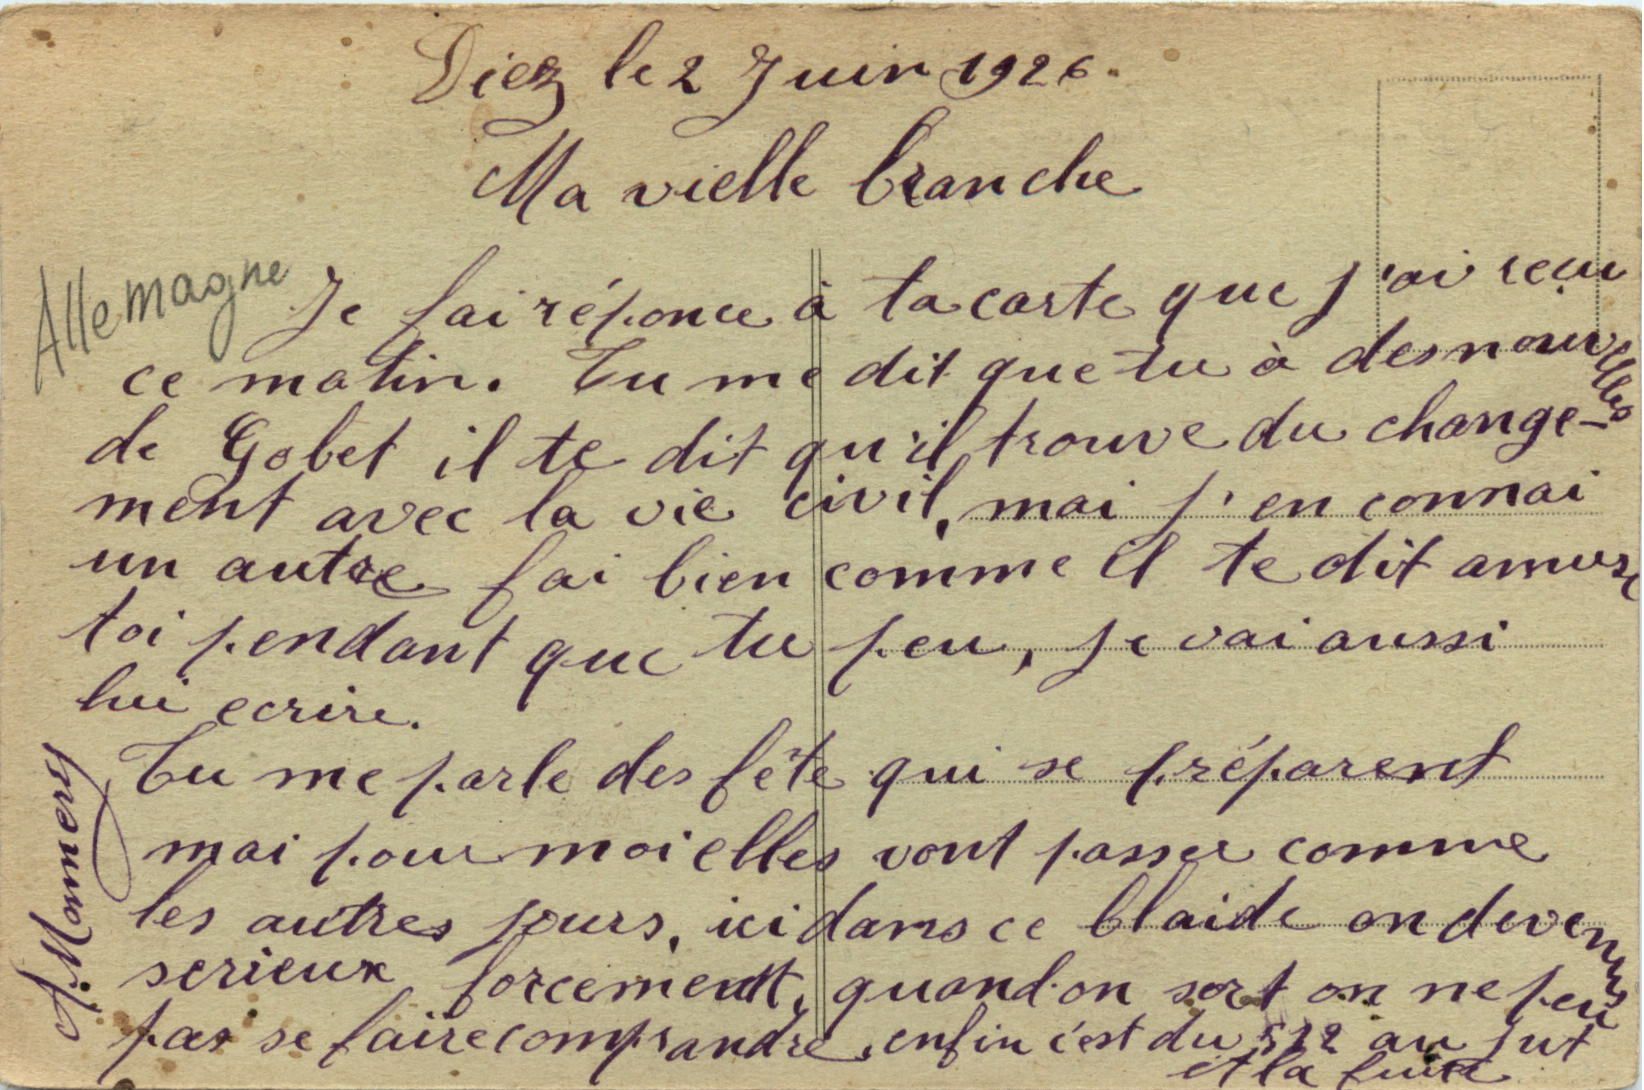 Diez le 2 Juin 1926.
Ma vielle branche
Allemagne
Je fai réponce à ta carte que j'ai reçu
ce matin. Tu me dit que tu à des nouvelles
de Gobet il te dit qu'il trouve du change-
ment avec la vie civil, mai j'en connai
un autre fai bien comme il te dit amuse
toi pendant que tu peu, je vai aussi
lui ecrire.
Tu me parle des fête qui se préparent
mai pour moi elles vont passer comme
les autres jours, ici dans ce blaide on devenus
serieux forcement, quand on sort on ne peu
pas se faire comprandre, enfin c'est du 512 au jut
et la fuite